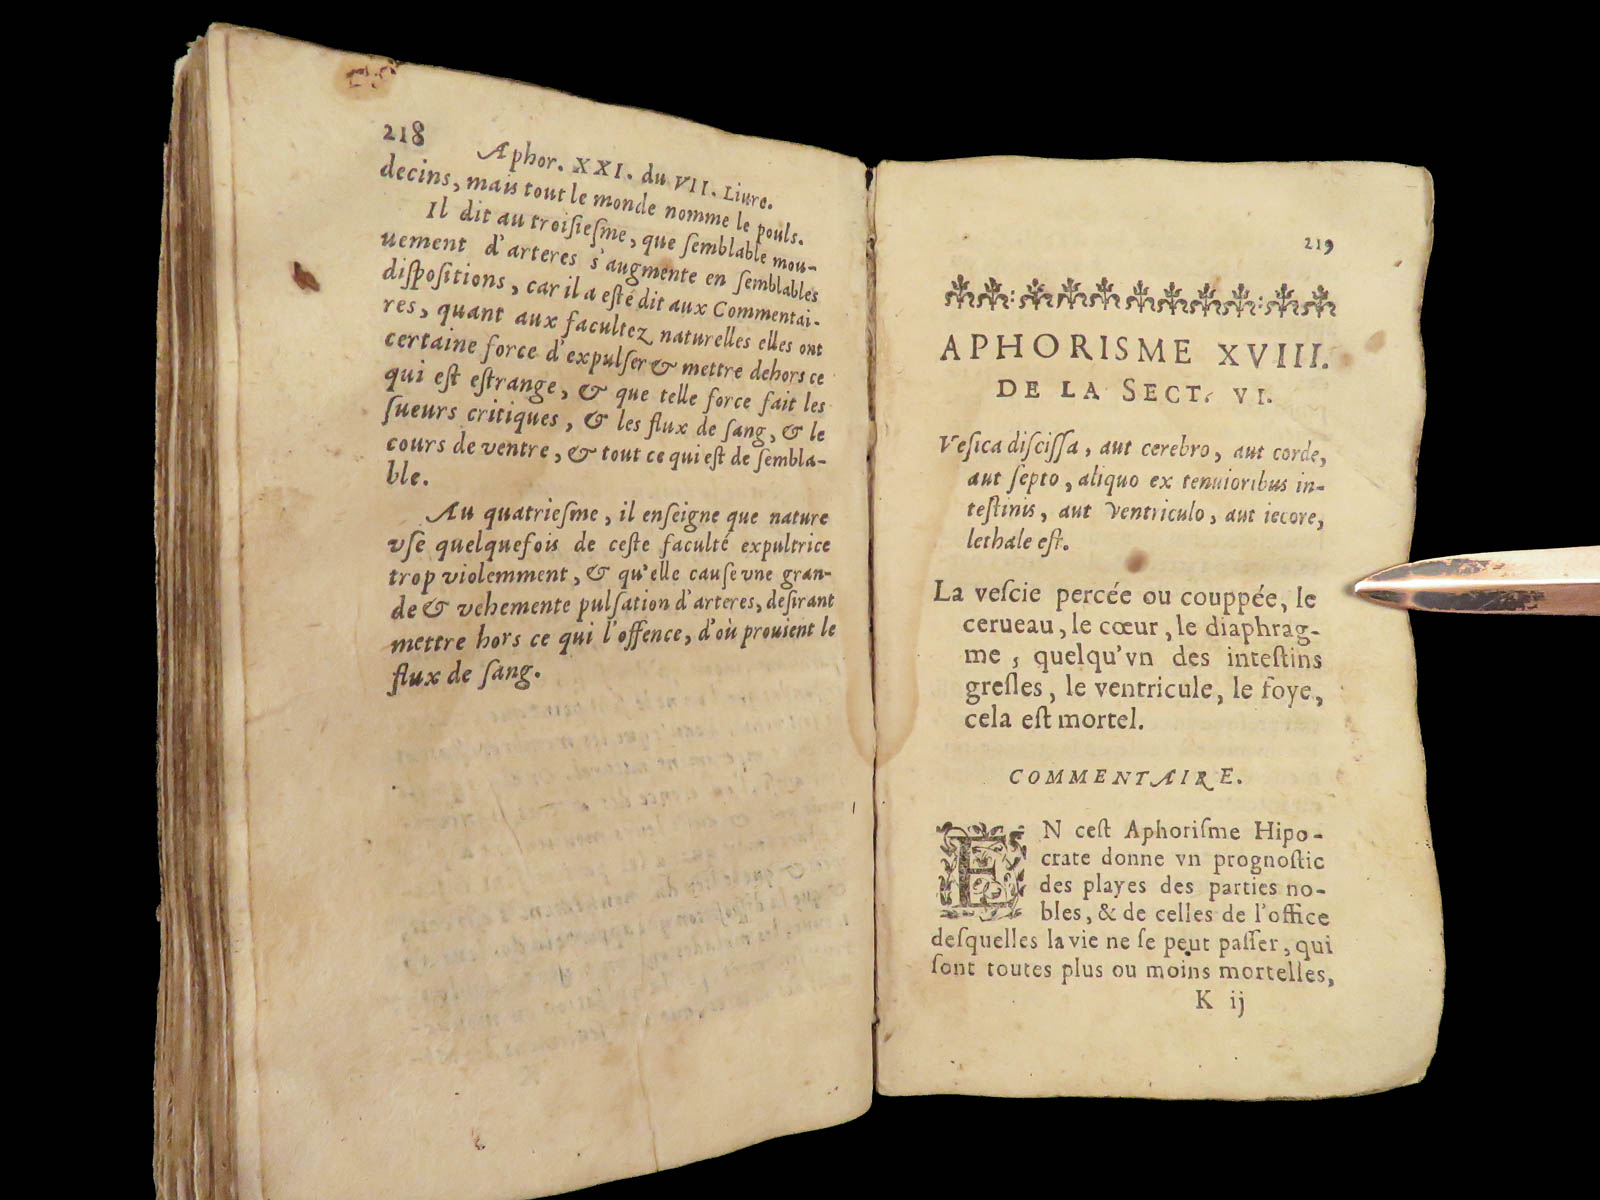 218
Aphor. XXI. du VII. Liure.
decins, mais tout le monde nomme le pouls.
Il dit au troiſieſme, que ſemblable mou-
uement d'arteres s'augmente en ſemblables
diſpoſitions, car il a eſté dit aux Commentai-
res, quant aux facultez naturelles elles ont
certaine force d'expulſer & mettre dehors ce
qui eſt eſtrange, & que telle force fait les
ſueurs critiques, & les flux de ſang, & le
cours de ventre, & tout ce qui eſt de ſembla-
ble.
Au quatrieſme, il enſeigne que nature
vſe quelquefois de ceſte faculté expultrice
trop violemment, & qu'elle cauſe vne gran-
de & vehemente pulſation d'arteres, deſirant
mettre hors ce qui l'offence, d'où prouient le
flux de ſang.
219
APHORISME XVIII.
DE LA SECT. VI.
Veſica diſciſſa, aut cerebro, aut corde,
aut ſepto, aliquo ex tenuioribus in-
teſtinis, aut ventriculo, aut iecore,
lethale eſt.
La veſcie percée ou couppée, le
cerueau, le cœur, le diaphrag-
me, quelqu'vn des inteſtins
greſles, le ventricule, le foye,
cela eſt mortel.
COMMENTAIRE.
EN ceſt Aphoriſme Hipo-
crate donne vn prognoſtic
des playes des parties no-
bles, & de celles de l'office
deſquelles la vie ne ſe peut paſſer, qui
ſont toutes plus ou moins mortelles,
K ij